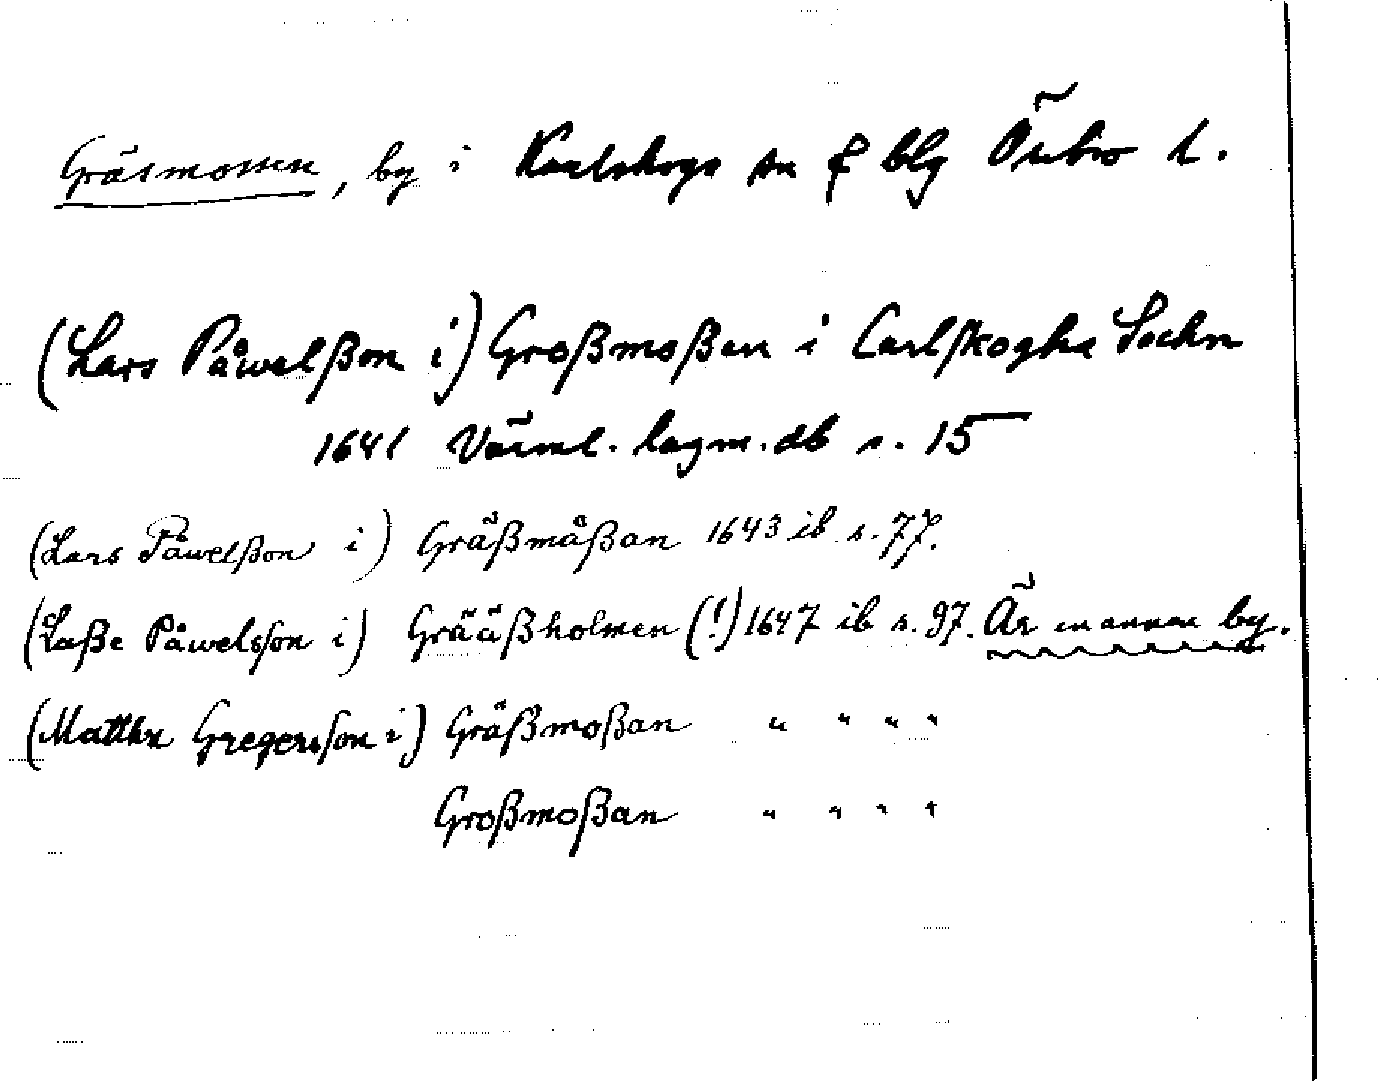 Gräsmossen, by i Karlskoga sn o bhg Örebro l.
(Lars Påwelßon i) Großmoßen i Carlskogha Sochn
1641 Värml. lagm. db s. 15
(Lars Påwelßon i) Gräßmåßan 1643 ib s. 77.
(Laße Påwelsson i) Grääßholmen (!) 1647 ib s. 97. Är en annan by.
(Matthx Gregersson i) Gräßmoßan " " " "
Großmoßan " " " "